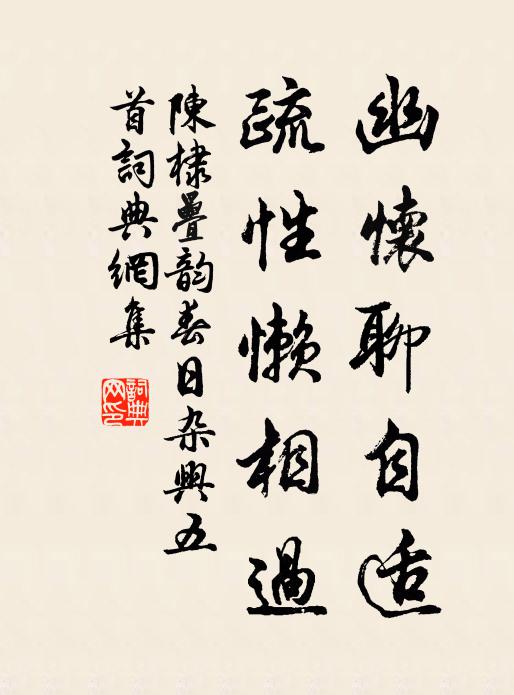 幽懷聊自适
疏性懶相過
陳棣疊韵春日杂興五
首詞典網集
詞典
网印